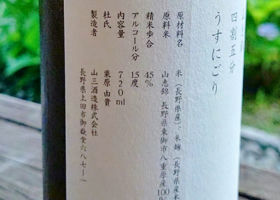 四割五分
うすにごり
原材料名　米（長野県産米）、米麹（長野県産米
原料米　山恵錦　長野県東御市八重原産100%
精米歩合　45%
アルコール分　15度
内容量　720ml
杜氏　栗原由貴
製造者　山三酒造株式会社
長野県上田市御嶽堂六八七ー一